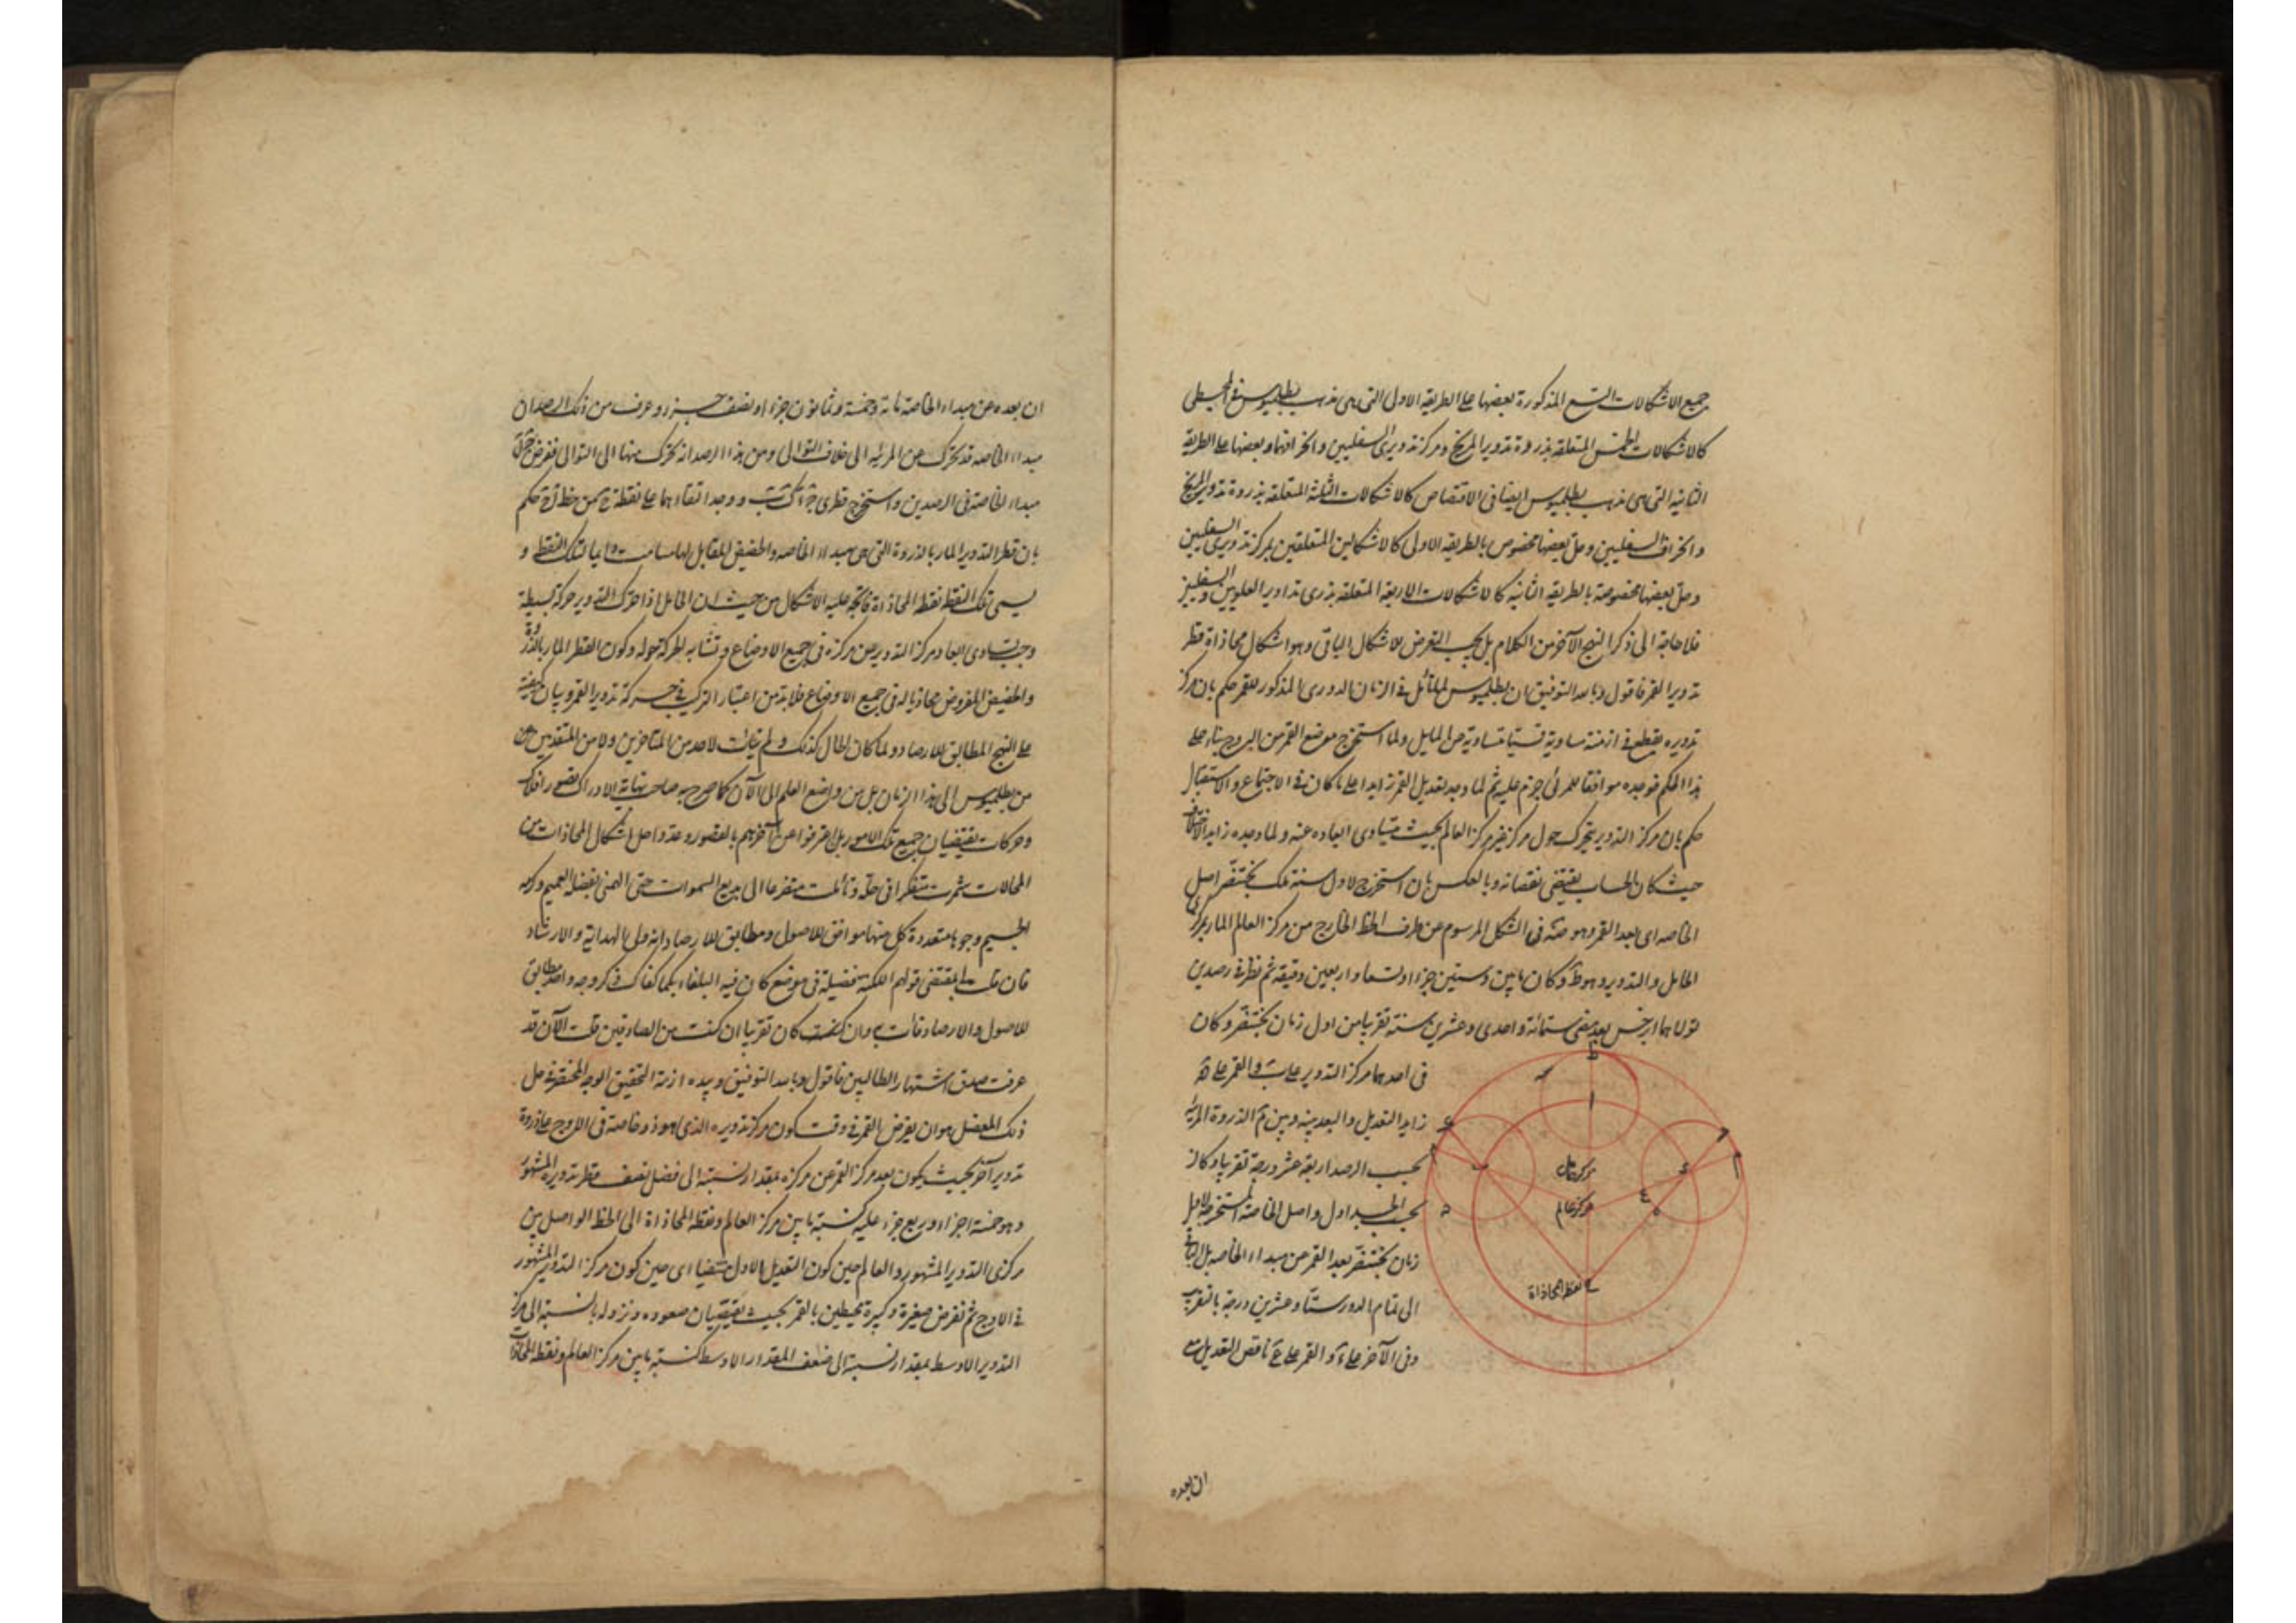 جميع الاشكالات التسع المذكورة بعضها على الطريقة الاولى التى هى مذهب بطلميوس فى المجسطى
كالاشكالات الخمس المتعلقة بذروة تدوير المريخ ومركز تدويرى السفليين وانحرافهما وبعضها على الطريقة
الثانية التى هى مذهب بطلميوس ايضا فى الاقتصاص كالاشكالات الثلثة المتعلقة بذروة تدوير المريخ
وانحراف السفليين وحل بعضها مخصوص بالطريقة الاولى كالاشكالين المتعلقين بمركز تدويرى السفليين
وحل بعضها مخصوصة بالطريقة الثانية كالاشكالات الاربعة المتعلقة بذرى تداوير العلويين والسفليين
فلا حاجة الى ذكر النهج الآخر من الكلام بل يجب التعرض للاشكال الباقى وهو اشكال محاذاة قطر
تدوير القمر فاقول وبالله التوفيق ان بطلميوس لما تأمل فى الزمان الدورى المذكور للقمر حكم بان مركز
تدويره يقطع فى ازمنة مساوية قسيا متساوية من المايل ولما استخرج موضع القمر من البروج بناء على
هذا الحكم فوجده موافقا للمرئى جزم عليه ثم لما وجد تعديل القمر زايدا على ما كان فى الاجتماع والاستقبال
حكم بان مركز التدوير يتحرك حول مركز غير مركز العالم بحيث يتساوى ابعاده عنه ولما وجده زايد الاختلاف
حيث كان الحساب يقتضى نقصانه وبالعكس بان استخرج لاول سنة ملك بختنصر اصل
الخاصه اى بعد القمر وهو فى الشكل المرسوم عن طرف الخط الخارج من مركز العالم المار بمركزى
الحامل والتدوير وهو ط وكان مايتين وستين جزءا وتسعا واربعين دقيقه ثم نظر فى رصدين
تولاهما ابرخس بعد مضى ستمائة واحدى وعشرين سنة تقريبا من اول زمان بختنصر وكان
فى احدهما مركز التدوير على ب والقمر على
زايد التعديل والبعد بينه وبين م الذروة المرئية
بحسب الرصد اربعة عشر درجة تقريبا وكان
بحسب الجداول واصل الخاصة المستخرجة لاول
زمان بختنصر بعد القمر من مبداء الخاصه بل الباقى
الى تمام الدور ستا وعشرين درجة بالتقريب
وفى الآخر على والقمر على ناقص التعديل مع
ط
ا
مركز حامل
مركز عالم
نقطه المحاذاة
ان بعده
ان بعده عن مبداء الخاصه مائة وخمسة وثمانون جزءا ونصف جزء وعرف من ذلك الرصد ان
مبداء الخاصه قد تحرك عن المرئيه الى خلاف التوالى ومن هذا الرصد انه تحرك منها الى التوالى ففرض
مبداء الخاصة فى الرصدين واستخرج قطرى ووجد التقاءهما على نقطة من خط حكم
بان قطر التدوير المار بالذروة التى هى مبداء الخاصه والحضيض المقابل لها مسامت دايما لتلك النقطة و
يسمى تلك النقطة نقطة المحاذاة فاتجه عليه الاشكال من حيث ان الحامل اذا حرك التدوير حركة بسيطة
وجب تساوى ابعاد مركز التدوير عن مركزه فى جميع الاوضاع وتشابه الحركة حوله وكون القطر المار بالذروة
والحضيض المفروض محاذيا له فى جميع الاوضاع فلا بد من اعتبار التركيب فى حركة تدوير القمر وبيان كيفيته
على النهج المطابق للارصاد ولما كان الحال كذلك ولم يتأت لاحد من المتاخرين ولا من المتقدمين
من بطلميوس الى هذا الزمان بل من واضع العلم الى الآن كما صرح به صاحب نهاية الادراك تصور افلاك
وحركات يقتضيان جميع تلك الامور بل اعترفوا عن آخرهم بالقصور وعدوا حل اشكال المحاذات من
المحالات شمرت متفكرا فى حله وتأملت متضرعا الى بديع السموات حتى الهمنى بفضله العميم وكرمه
الجسيم وجوها متعددة كل منها موافق للاصول ومطابق للارصاد انه ولى الهداية والارشاد
فان قلت بمقتضى قولهم النكتة فضيلة فى موضع كان فيه البلغاء بكما كفاك ذكر وجه واحد مطابق
للاصول والارصاد فأت به وان كان تقريبا ان كنت من الصادقين قلت الآن قد
عرفت صدق اشتهار الطالبين فاقول وبالله التوفيق وبيده ازمة التحقيق الوجه المختصر فى حل
ذلك المعضل هو ان يفرض القمر فى وقت كون مركز تدويره الذى هو ذو خاصة فى الاوج على ذروة
تدوير آخر بحيث يكون بعد مركز القمر عن مركزه بمقدار نسبته الى فضل نصف قطر تدويره المشهور
وهو خمسة اجزاء وربع جزء عليه كنسبة ما بين مركز العالم ونقطة المحاذاة الى الخط الواصل بين
مركزى التدوير المشهور والعالم حين كون التعديل الاول منتفيا اى حين كون مركز التدوير المشهور
فى الاوج ثم نفرض صغيرة وكبيرة محيطين بالقمر بحيث يقتضيان صعوده ونزوله بالنسبة الى مركز
التدوير الاوسط بمقدار نسبته الى ضعف المقدار الاوسط كنسبة ما بين مركز العالم ونقطة المحاذاة